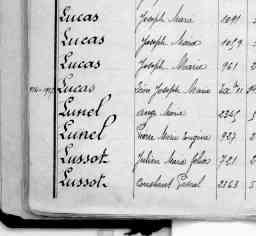 Lucas Joseph Marie 1091
Lucas Joseph Marie 1059
Lucas Joseph Marie 961
Lucas Joseph Marie
Lunel Ange Marie 2345
Lunel Pierre Marie Eugène 927
Lussot Julien Marie 721
Lussot Constant Pascal 2163